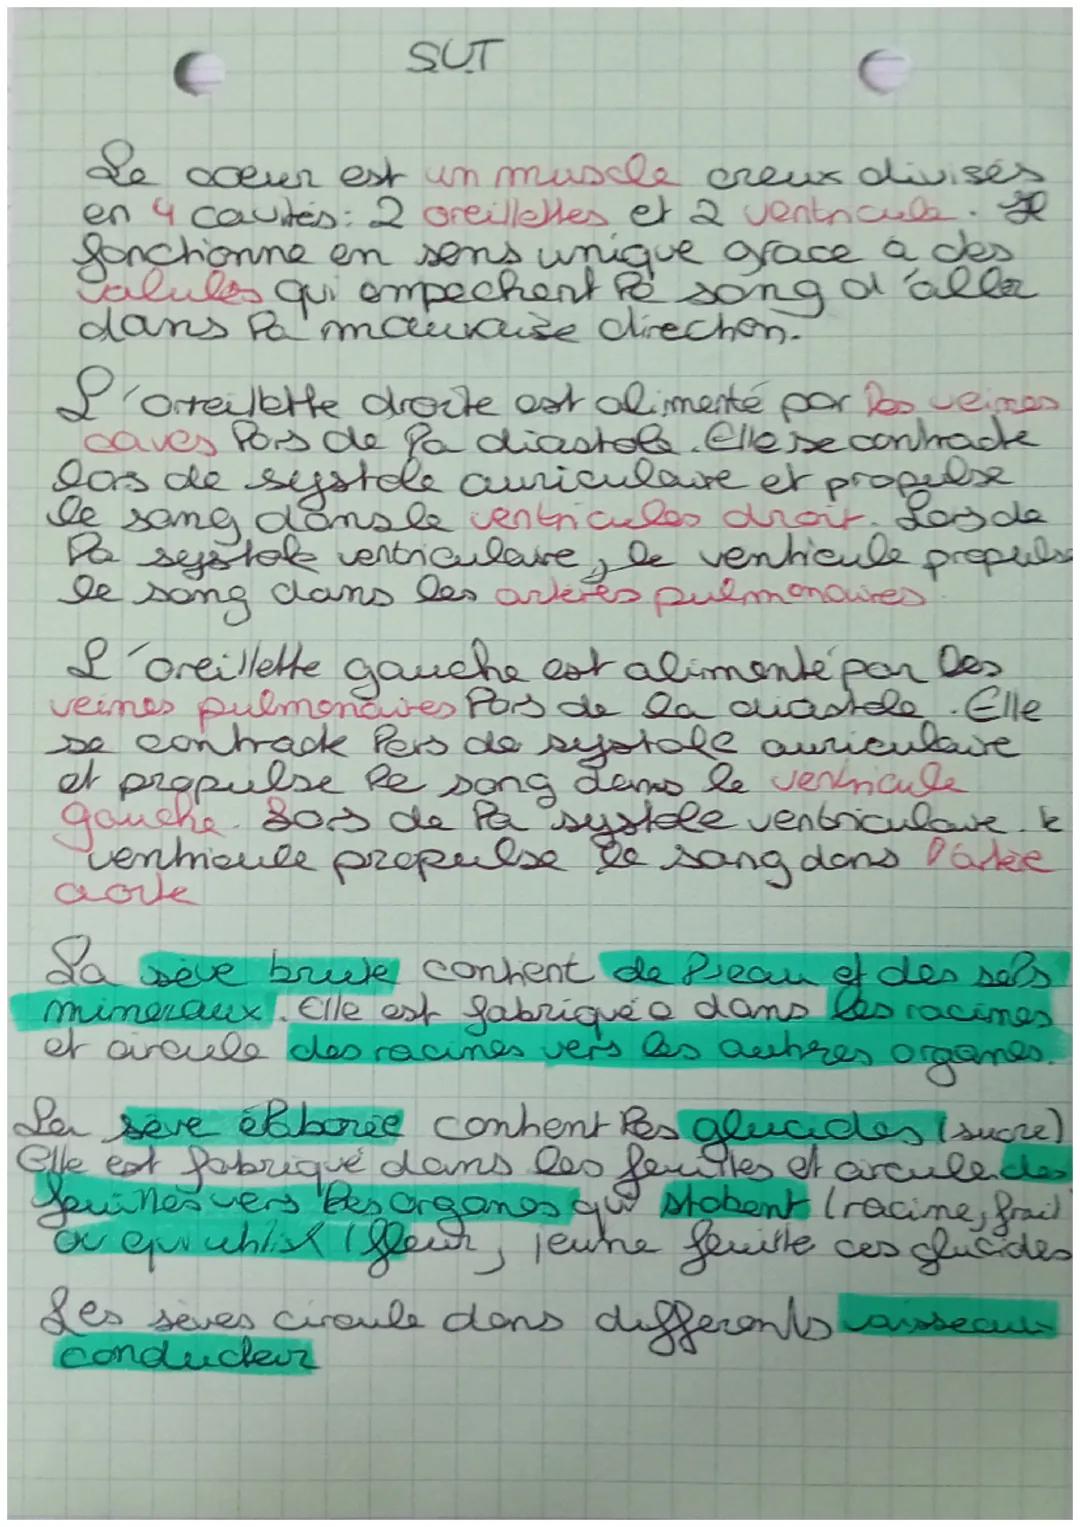 SVT
Le coeur est un muscle creux divisés
en 4 cavités: 2 oreillettes et 2 ventricule. Il
fonctionne en sens unique grace a des
valules qui empechent le sang d'aller
dans la mauvaise direction.
L'oreillette droite est alimenté par les veines
caves lors de la diastole. Elle se contracte
lors de systole auriculaire et propulse
le sang dans le ventricules droit. Lors de
la systole ventriculaire, le ventricule propulse
le sang dans les artères pulmonaires.
L'oreillette gauche est alimenté par les
veines pulmonaires lors de la diastole. Elle
se contracte lors de systole auriculaire
et propulse le sang dans le ventricule
gauche. Lors de la systole ventriculaire. le
ventricule propulse le sang dans l'artère
aorte
La sève brute contient de l'eau et des sels
mineraux. Elle est fabriquée dans les racines
et circule des racines vers les autres organes.
La sève élaborée contient les glucides (sucre)
Elle est fabriqué dans les feuilles et circule des
feuilles vers les organes qui stokent (racine, fruit
ou qui utilist (fleur, jeune feuille ces glucides
Les sèves circule dans differents vaisseaux
conducteur